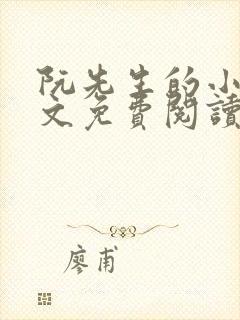 阮先生的小
文免費閱讀
廖甫